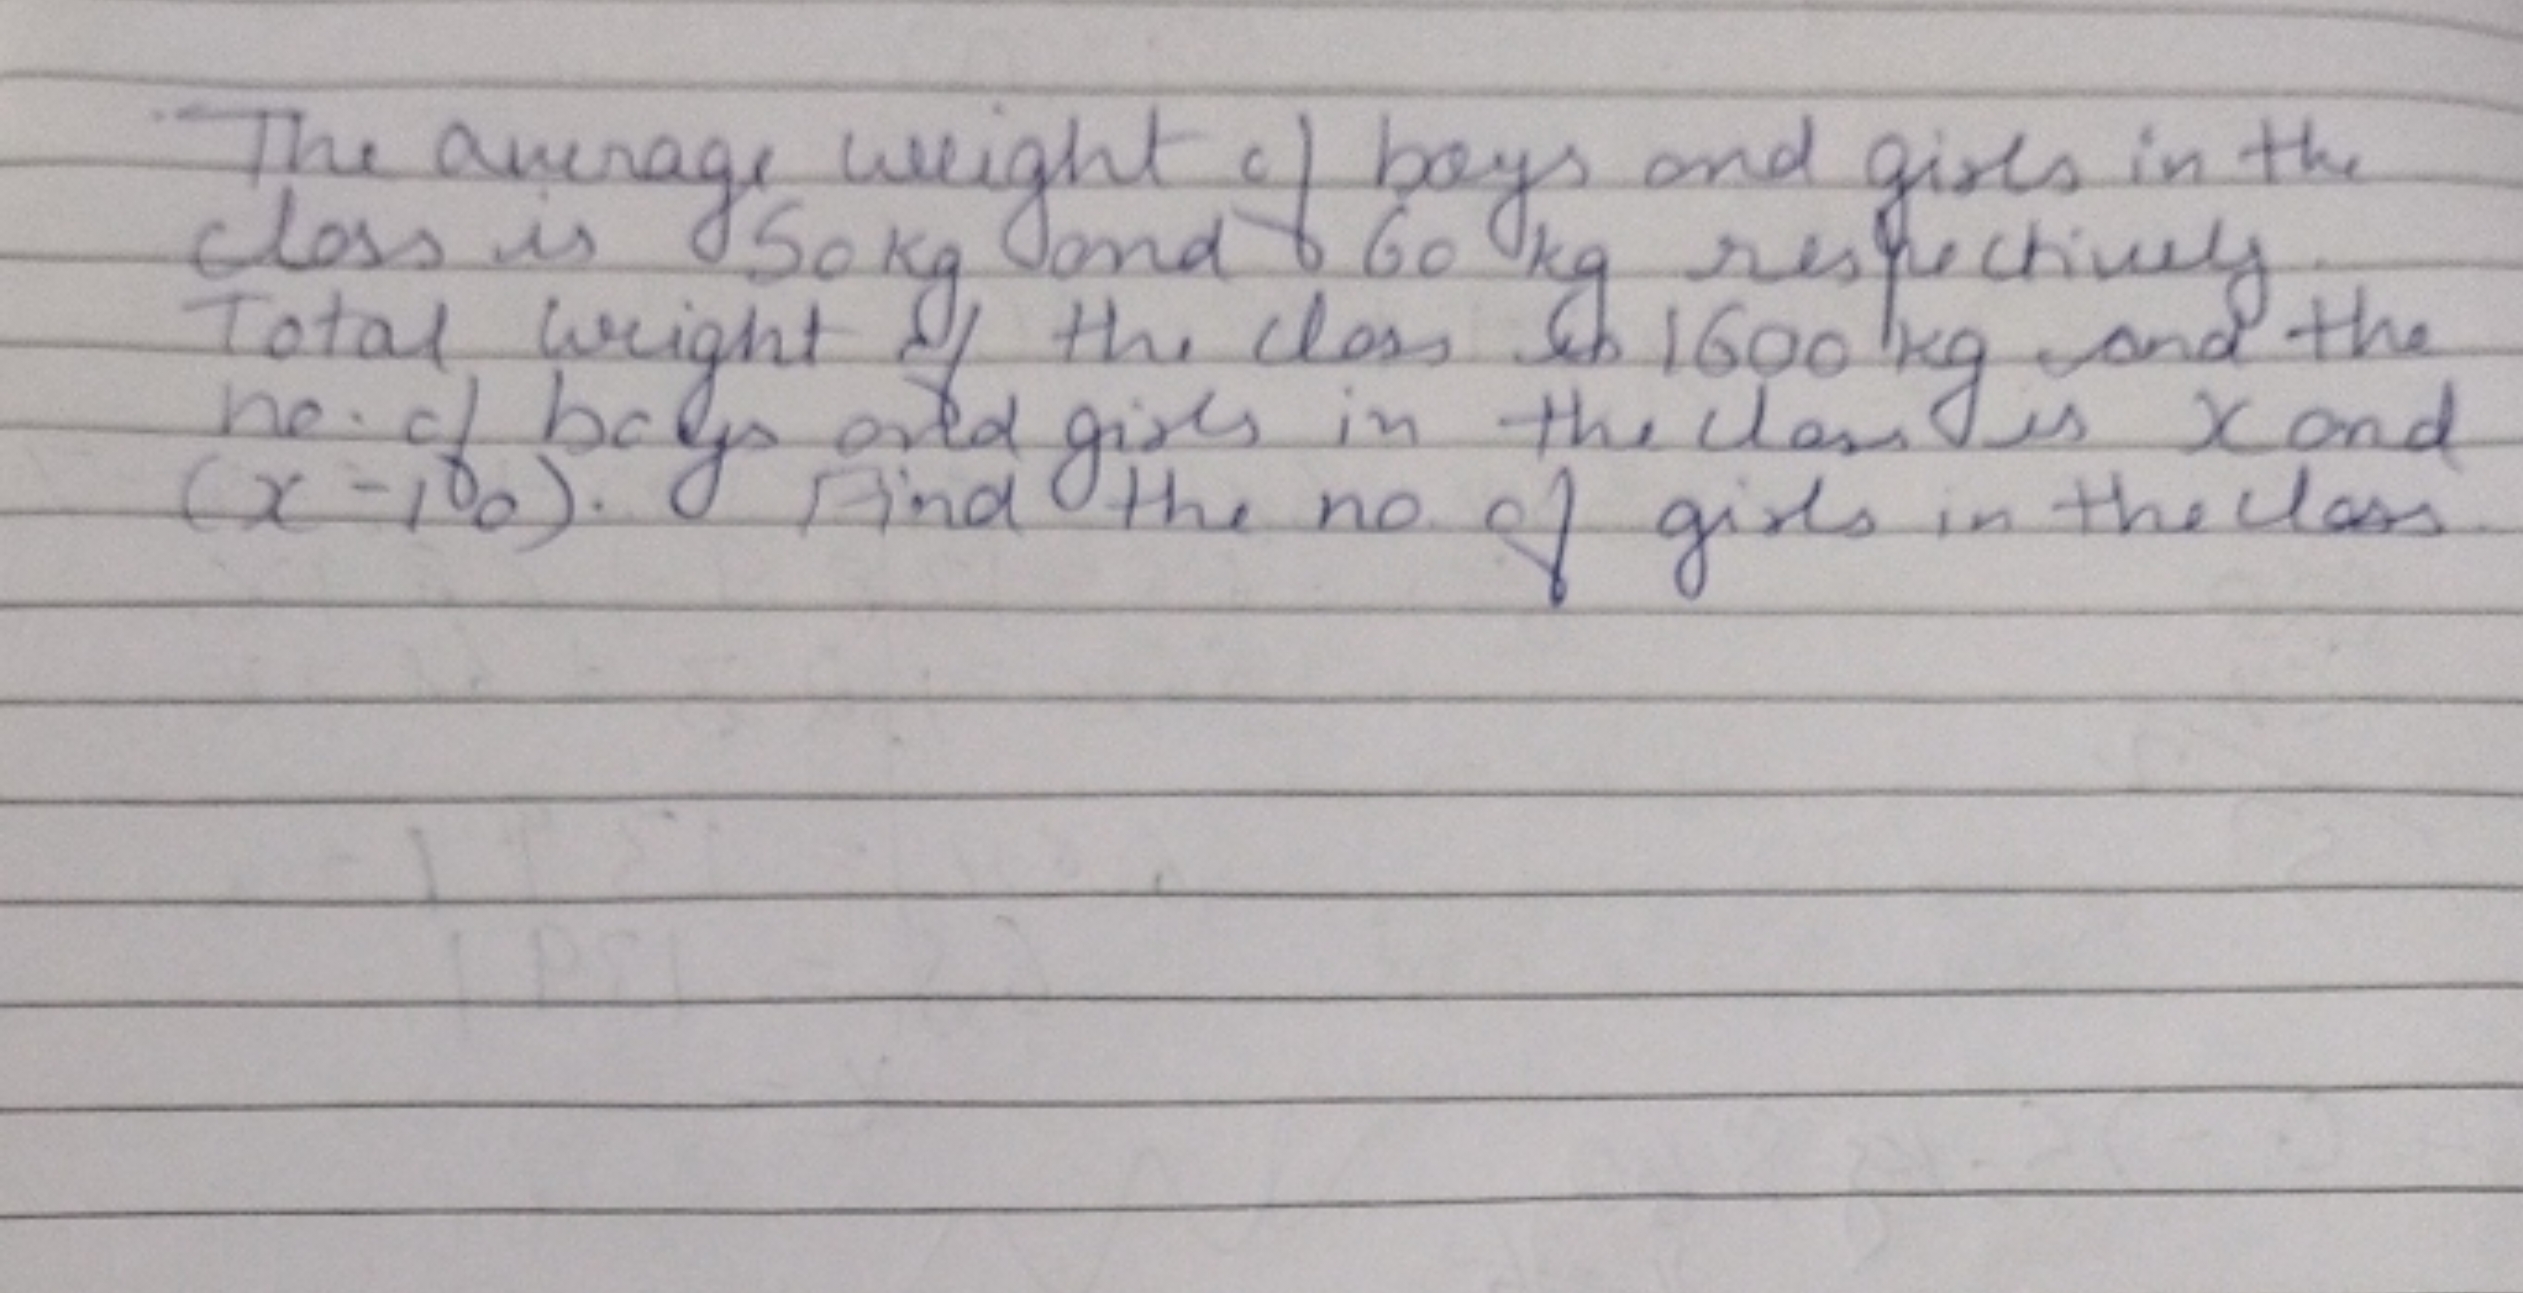 The average weight of boys and girls in the
class is 50 kg and 60 kg respectively.
Total weight of the class is 1600 kg and the
no. of boys and girls in the class is x and
(x - 10). Find the no. of girls in the class.